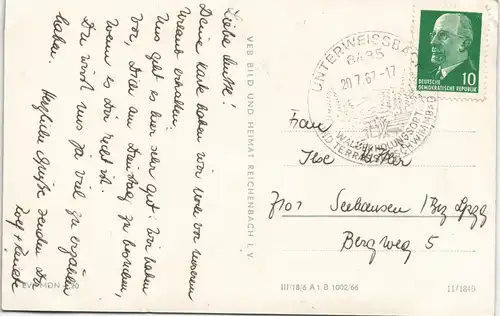 Liebe Mutti!
Deine Karte haben wir noch vor unserem
Urlaub erhalten.
Uns geht es hier sehr gut. Wir haben
vor, Dich am Dienstag zu besuchen,
wenn es Dir recht ist.
Du wirst uns ja viel zu erzählen
haben.
Herzliche Grüße senden Dir
Rolf + Renate
VEB BILD UND HEIMAT REICHENBACH i. V.
UNTERWEISSBACH
6435
20.7.67-17
WALDERHOLUNGSORT
DEUTSCHE
DEMOKRATISCHE REPUBLIK
10
Frau
Ilse
7101 Seehausen / Bz Lpzg
Bergweg 5
III/18/6 A 1 B 1002/66
11/1840